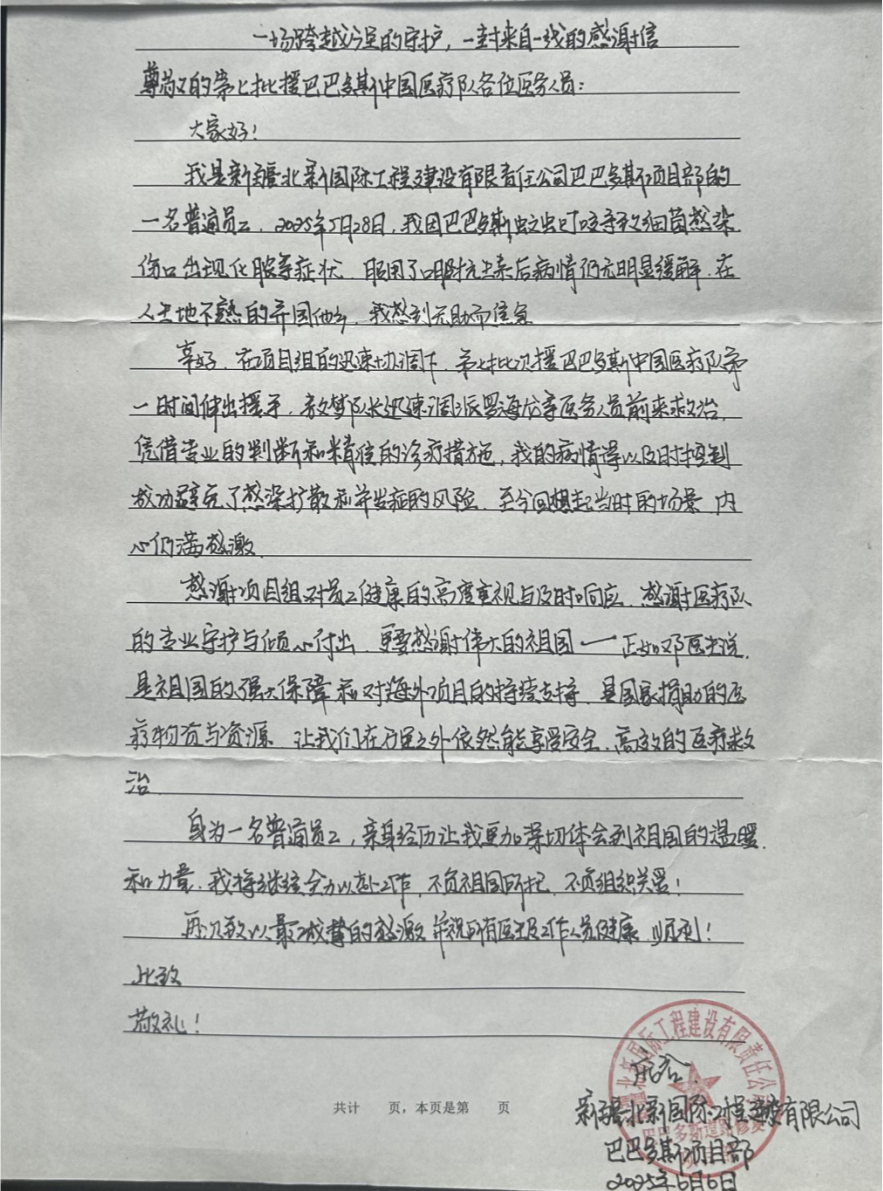 一场跨越万里的守护，一封来自一线的感谢信
尊敬的第七批援巴巴多斯中国医疗队各位医务人员：
大家好！
我是新疆北新国际工程建设有限责任公司巴巴多斯项目部的
一名普通员工，2025年5月28日，我因巴巴多斯蚊虫叮咬导致细菌感染
伤口出现化脓等症状，服用了口服抗生素后病情仍无明显缓解，在
人生地不熟的异国他乡，我感到无助而焦急
幸好，在项目组的迅速协调下，第七批次援巴巴多斯中国医疗队第
一时间伸出援手，队长迅速调派医务人员前来救治，
凭借专业的判断和精准的诊疗措施，我的病情得以及时控制
成功避免了感染扩散和并发症的风险，至今回想起当时的场景，内
心仍满感激
感谢项目组对员工健康的高度重视与及时响应，感谢医疗队
的专业守护与倾心付出，更要感谢伟大的祖国——正如邓医生说，
是祖国的强大保障和对海外项目的持续支持，是国家捐助的医
疗物资与资源，让我们在万里之外依然能享受安全、高效的医疗救
治
身为一名普通员工，亲身经历让我更加深切体会到祖国的温暖
和力量，我将继续全力以赴工作，不负祖国所托，不负组织关爱！
再次致以最诚挚的感激，并祝所有医生及工作人员健康，顺利！
此致
敬礼！
共计 页，本页是第 页
新疆北新国际工程建设有限责任公司
巴巴多斯道路修复
新疆北新国际工程建设有限公司
巴巴多斯项目部
2025年6月6日